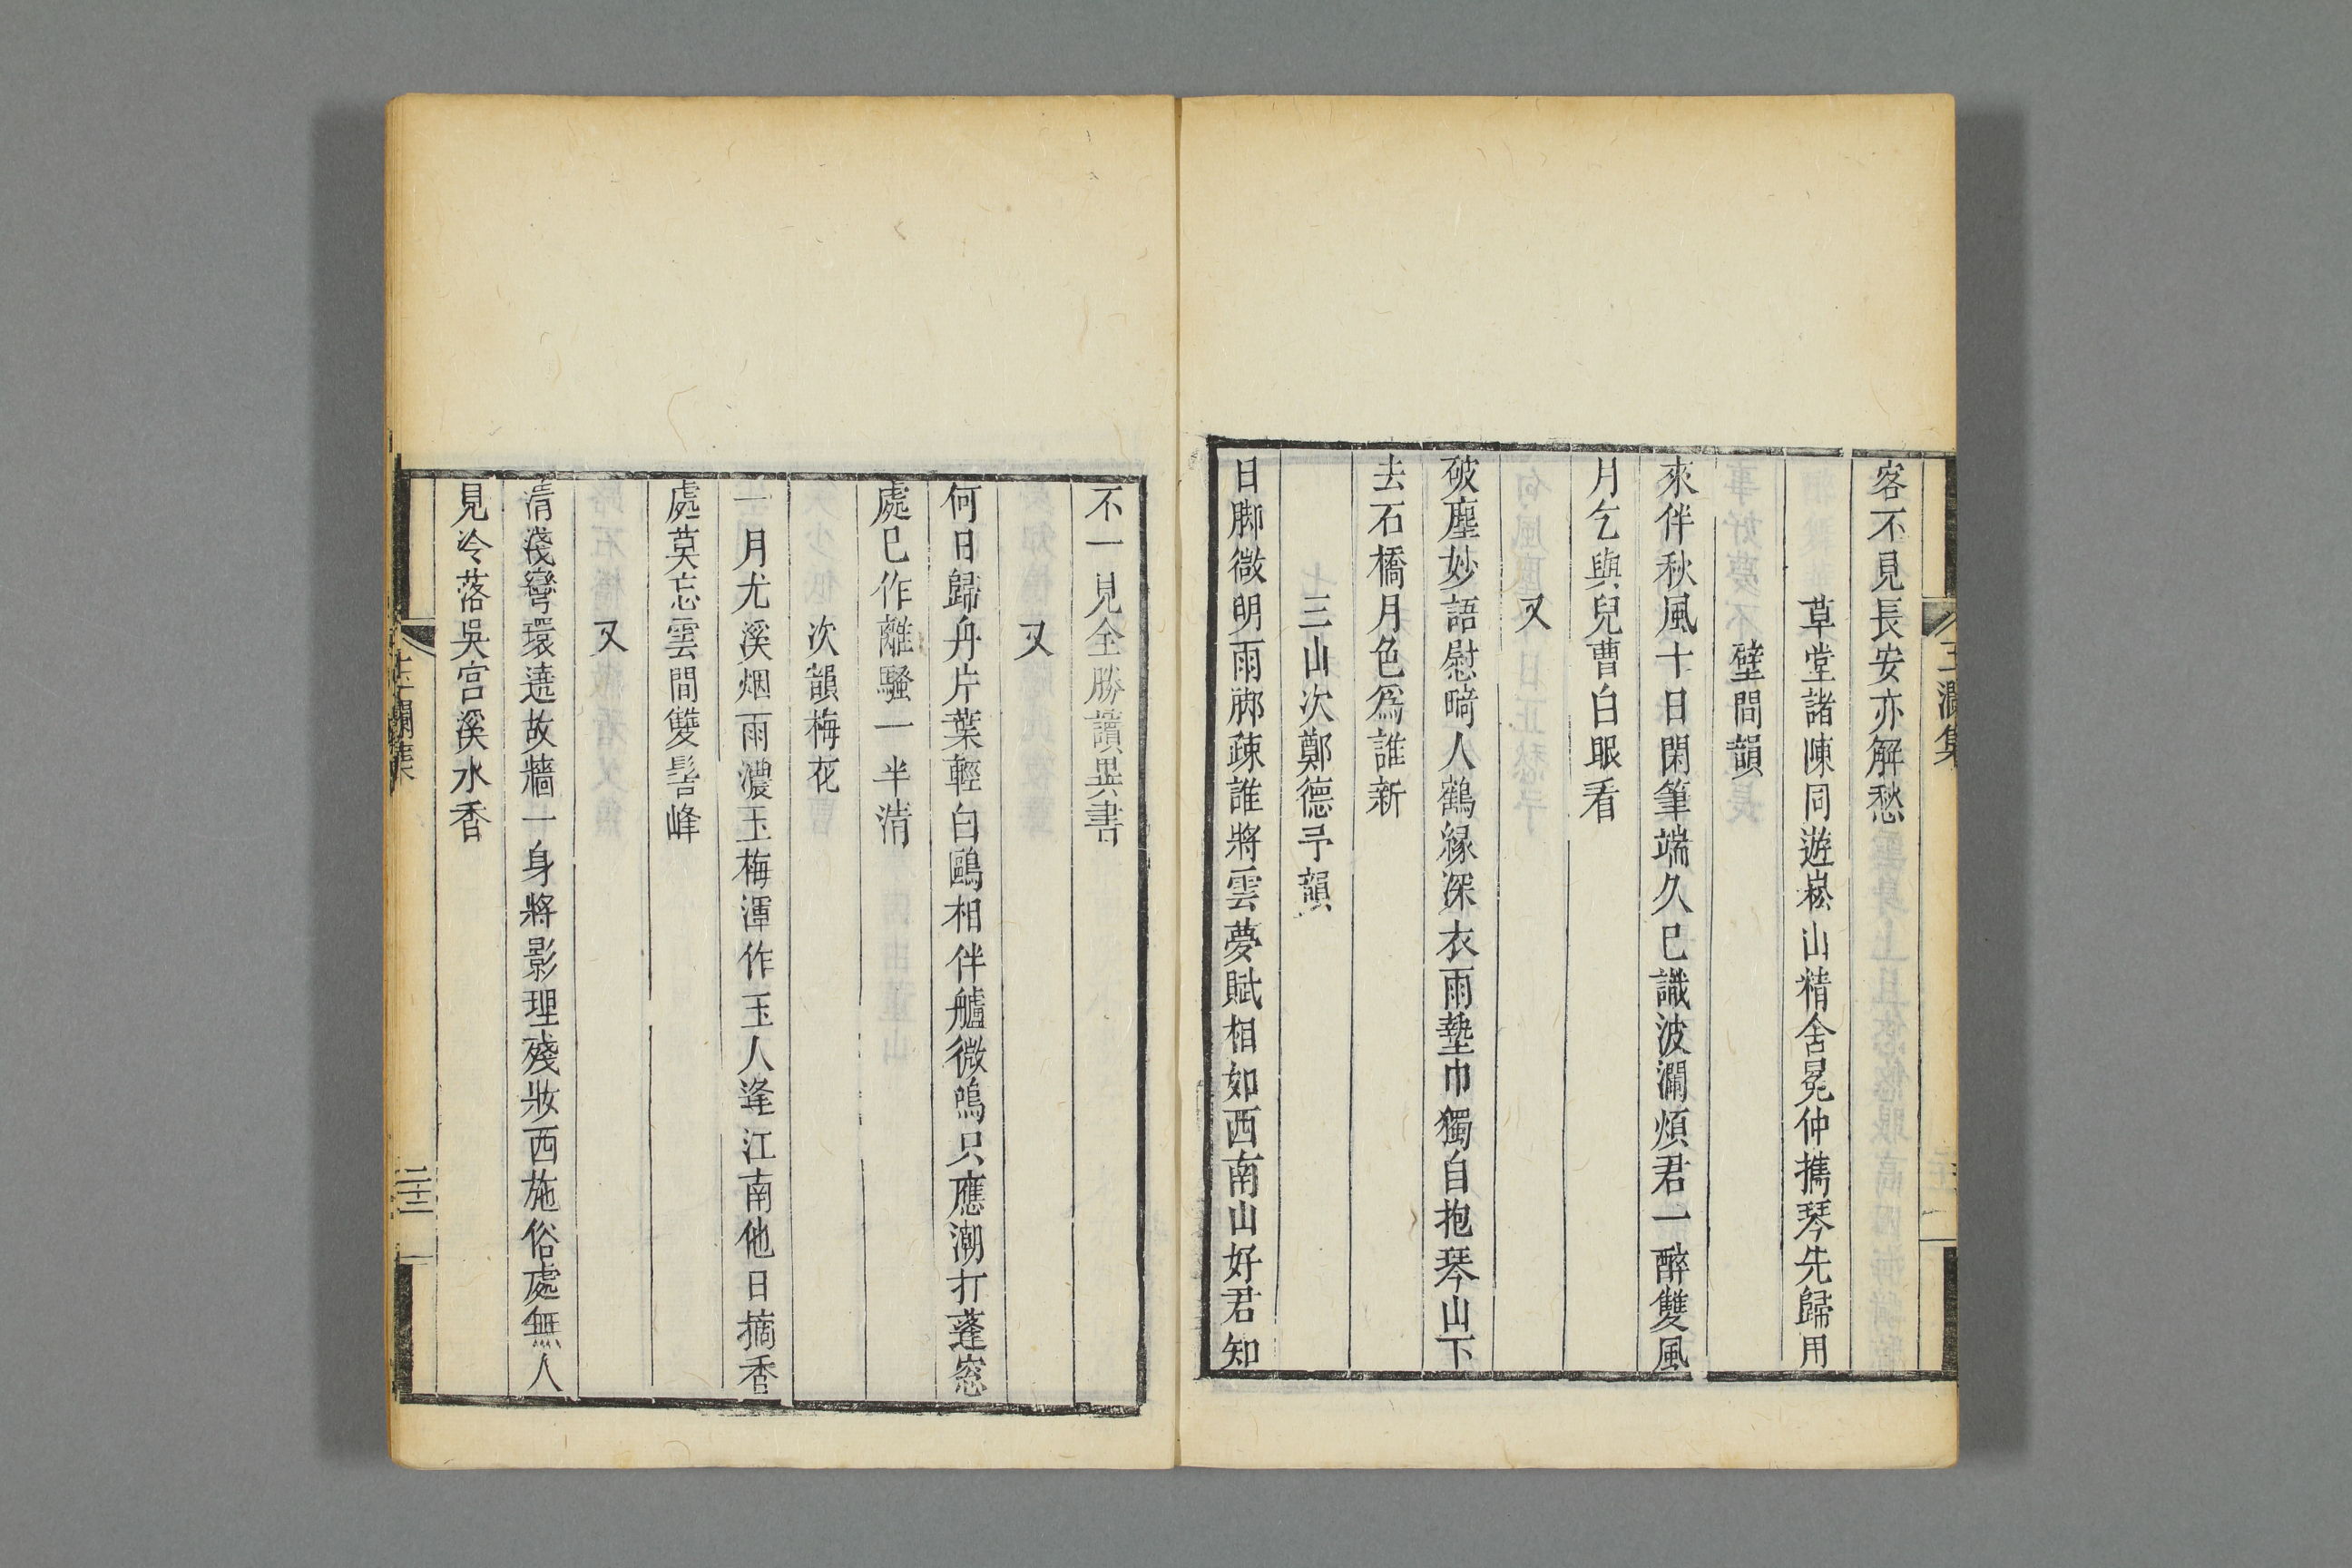 客不見長安亦解愁
草堂諸陳同遊崧山精舍晁仲擕琴先歸用
壁間韻
來伴秋風十日閑筆端久已識波瀾煩君一醉雙風
月乞與兒曹白眼看
又
破塵妙語慰畸人鶴緣深衣雨墊巾獨自抱琴山下
去石橋月色爲誰新
三山次鄭德予韻
日脚微明雨脚疎誰將雲夢賦相如西南山好君知
不一見全勝讀異書
又
何日歸舟片葉輕白鷗相伴艫微鳴只應潮打蓬窓
處已作離騷一半清
次韻梅花
一月尤溪烟雨濃玉梅渾作玉人逢江南他日摘香
處莫忘雲間雙髻峰
又
清淺彎環遶故牆一身將影理殘妝西施俗處無人
見冷落吳宫溪水香
玉瀾集
二十三